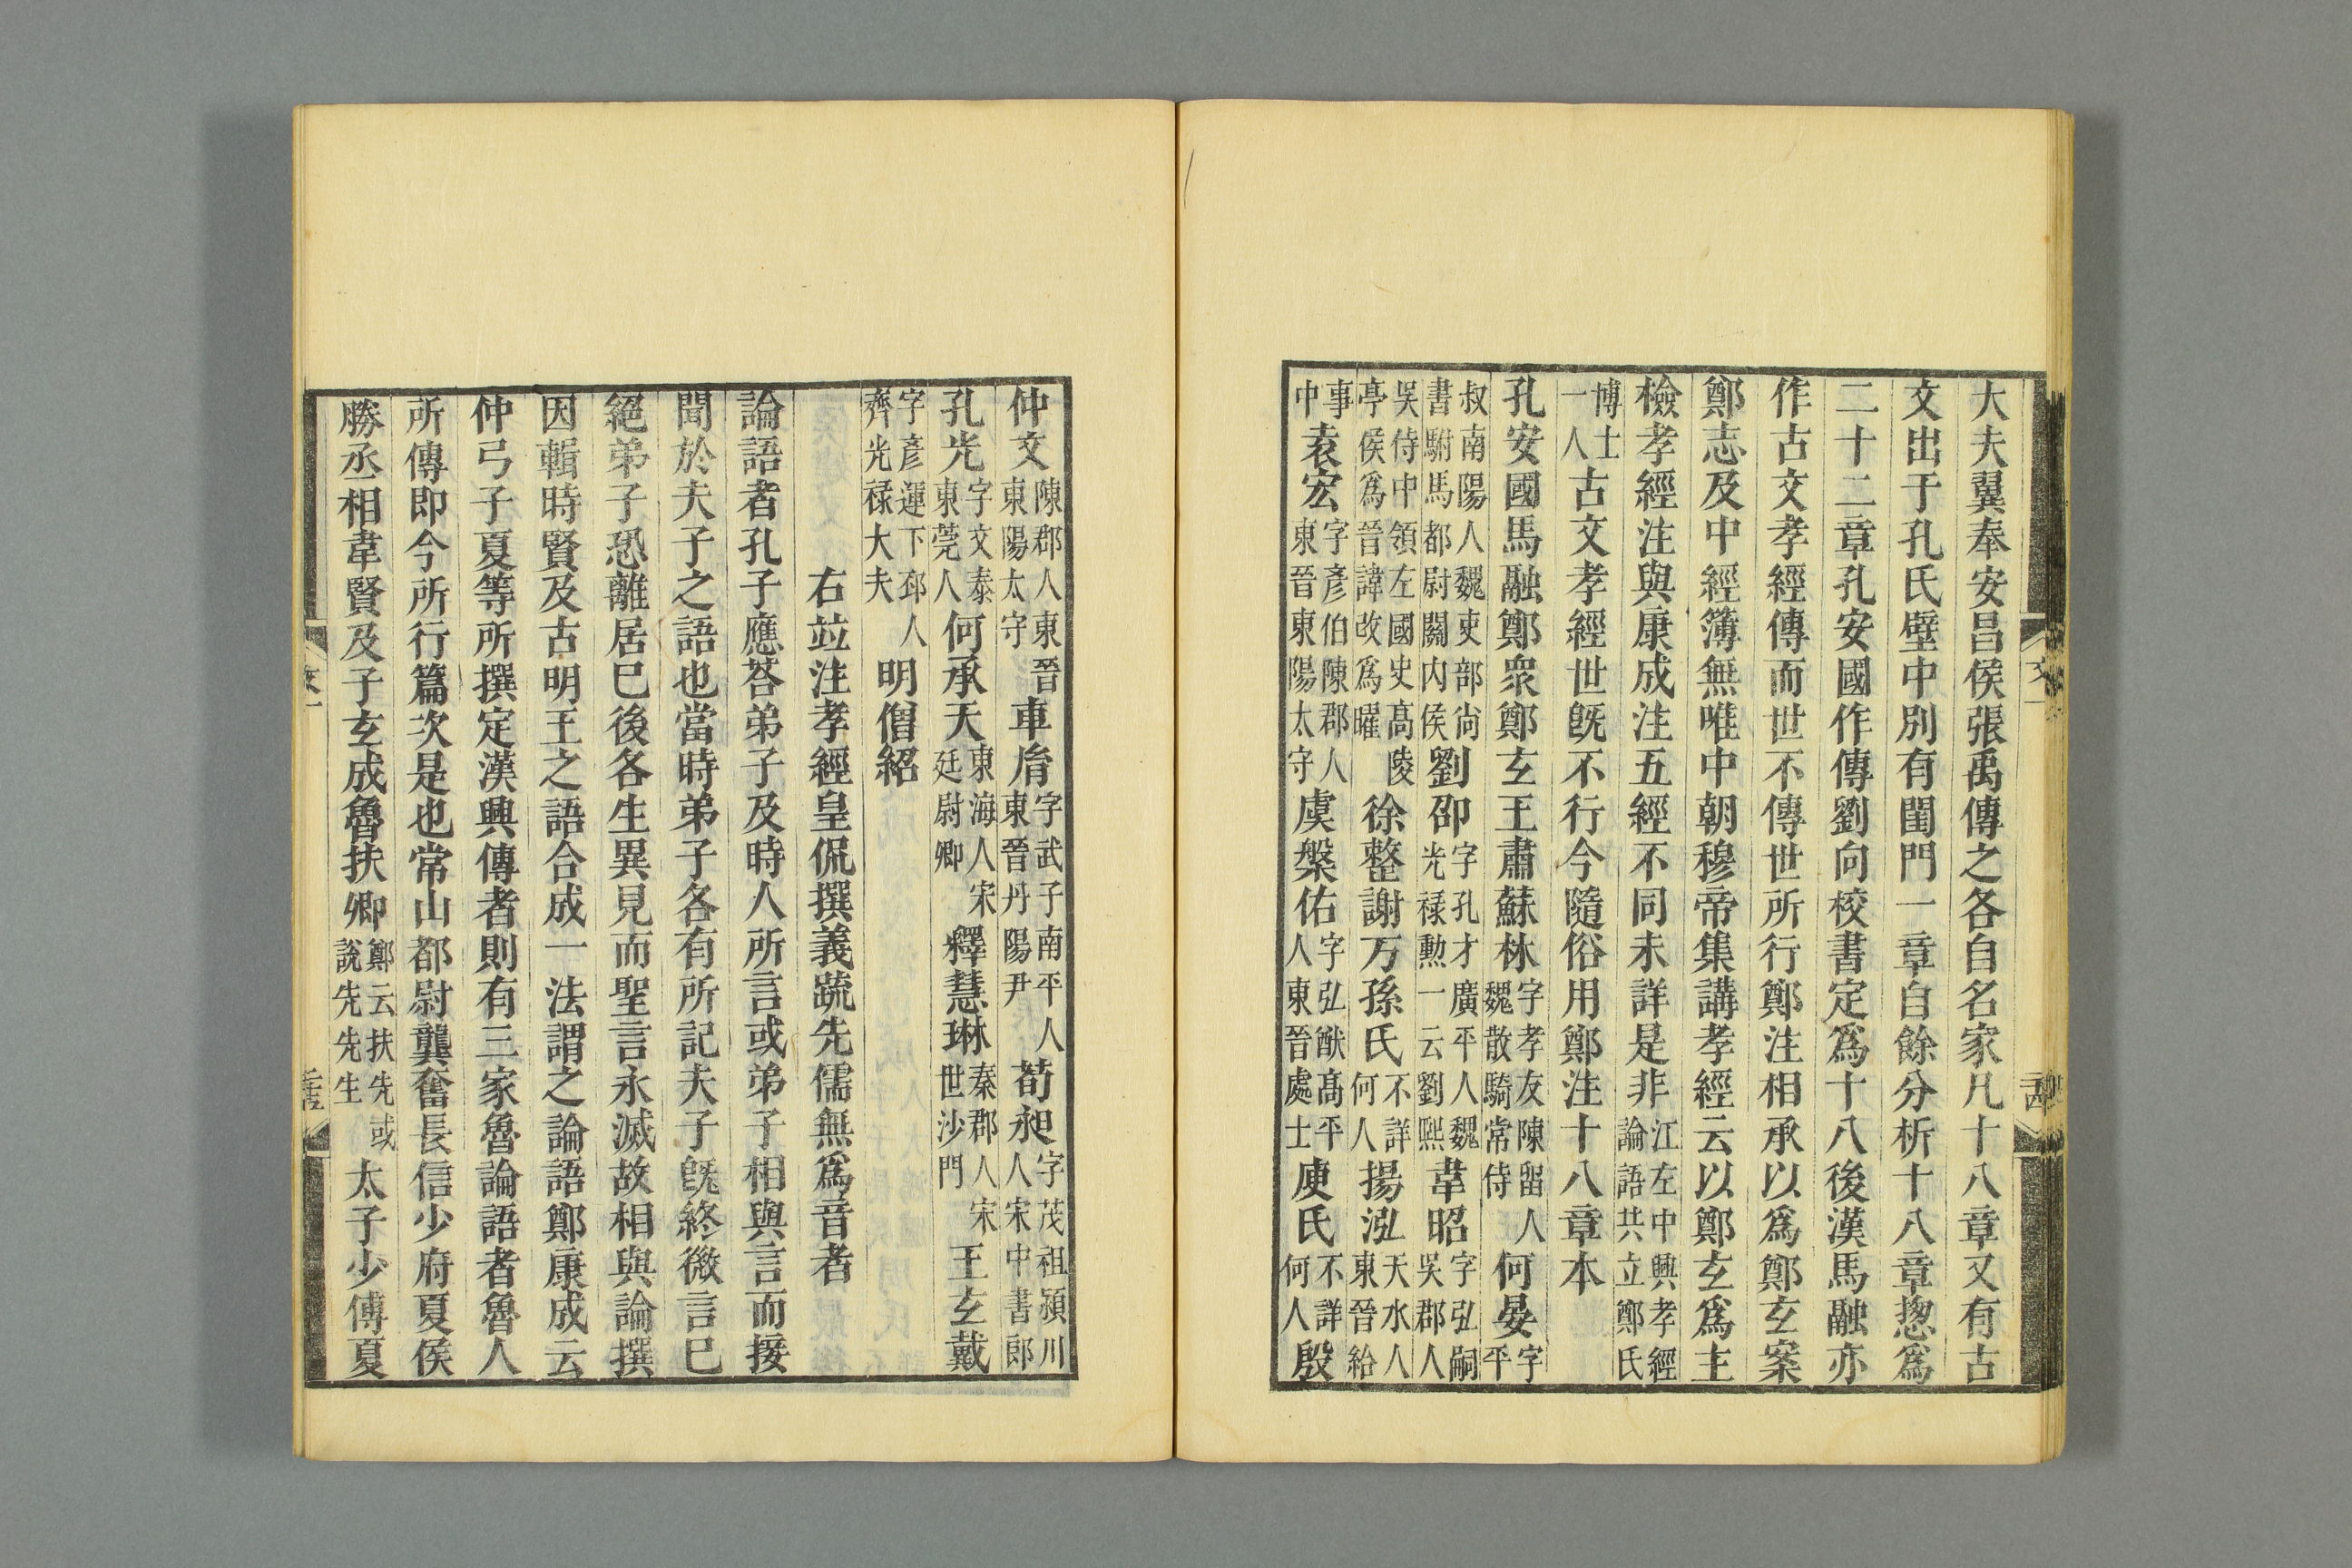 大夫翼奉安昌侯張禹傳之各自名家凡十八章又有古
文出于孔氏壁中別有閨門一章自餘分析十八章揔爲
二十二章孔安國作傳劉向校書定爲十八後漢馬融亦
作古文孝經傳而世不傳世所行鄭注相承以爲鄭玄案
鄭志及中經簿無唯中朝穆帝集講孝經云以鄭玄爲主
檢孝經注與康成注五經不同未詳是非江左中興孝經論語共立鄭氏
博士一人古文孝經世既不行今隨俗用鄭注十八章本
孔安國馬融鄭衆鄭玄王肅蘇林字孝友陳留人魏散騎常侍何晏字平
叔南陽人魏吏部尚書駙馬都尉關内侯劉邵字孔才廣平人魏光祿勲一云劉熙韋昭字弘嗣吳郡人
吳侍中領左國史髙陵亭侯爲晉諱改爲曜徐整謝万孫氏不詳何人揚泓天水人東晉給
事中袁宏字彥伯陳郡人東晉東陽太守虞槃佑字弘猷髙平人東晉處士庾氏不詳何人殷
仲文陳郡人東晉東陽太守車胤字武子南平人東晉丹陽尹荀昶字茂祖潁川人宋中書郎
孔光字文泰東莞人何承天東海人宋廷尉卿釋慧琳秦郡人宋世沙門王玄戴
字彥運下邳人齊光祿大夫明僧紹
右竝注孝經皇侃撰義疏先儒無爲音者
論語者孔子應荅弟子及時人所言或弟子相與言而接
聞於夫子之語也當時弟子各有所記夫子既終微言已
絕弟子恐離居已後各生異見而聖言永滅故相與論撰
因輯時賢及古明王之語合成一法謂之論語鄭康成云
仲弓子夏等所撰定漢興傳者則有三家魯論語者魯人
所傳即今所行篇次是也常山都尉龔奮長信少府夏侯
勝丞相韋賢及子玄成魯扶卿鄭云扶先或說先先生太子少傅夏